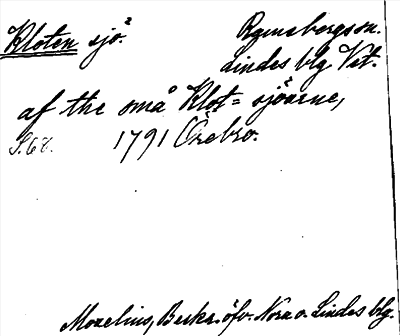 Kloten sjö.
Ramsbergs sn.
Lindes blg Vst.
af the små Klot= sjöarne,
S.68. 1791 Örebro.
Moræelius, Beskr. öfv. Nora o. Lindes blg.